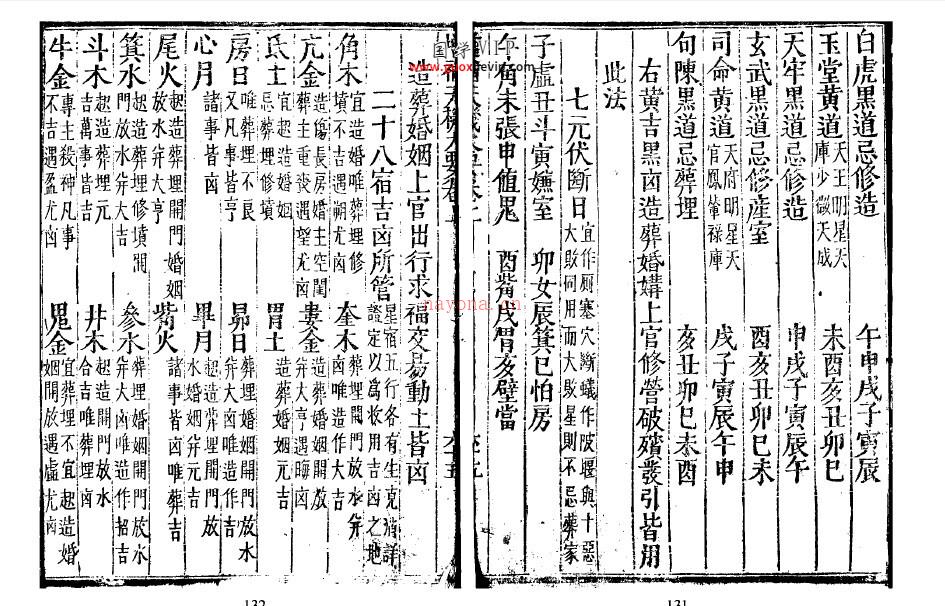 白虎黑道忌修造 午申戌子寅辰
玉堂黄道天王明星天庫少微天成 未酉亥丑卯巳
天牢黑道忌修造 申戌子寅辰午
玄武黑道忌修産室 酉亥丑卯巳未
司命黄道天府明星天官鳳輦祿庫 戌子寅辰午申
句陳黑道忌葬埋 亥丑卯巳未酉
右黄吉黑凶造葬婚媾上官修營破殯發引皆用
此法
七元伏斷日宜作厠塞穴斷蟻作陂堰與十惡大敗何用而大敗星則不忌葬家
子虛丑斗寅嫵室 卯女辰箕巳怕房
午角未張申値鬼 酉觜戌胃亥壁當
造葬婚姻上官出行求福交易動土皆凶
二十八宿吉凶所管星宿五行各有生克消詳證定以爲收用吉凶之地
角木宜造婚唯葬埋修墳不吉遇朔尤凶 奎木葬埋開門放水并凶唯造作大吉
亢金造傷長房婚主空閨葬主重喪遇望尤凶 婁金造葬婚姻開放并大亨遇晦凶
氐土宜起造婚姻忌葬埋修墳 胃土造葬婚姻元吉
房日唯葬埋不良又凡事皆亨 昴日葬埋婚姻開門放水并大凶唯造作吉
心月諸事皆凶 畢月起造葬埋開門放水婚姻并元吉
尾火起造葬埋開門婚姻放水并大亨 觜火諸事皆凶唯葬吉
箕水起造葬埋修墳開門放水并大吉 參水葬埋婚姻開門放水并大凶唯造作招吉
斗木起造葬埋元吉萬事皆吉 井木起造開門放水合吉唯葬埋凶
牛金專主殺神凡事不吉遇盈尤凶 鬼金宜葬埋不宜起造婚姻開放遇虛尤凶
国学 VIP
www.guoxuevip.com
nayona.cn
132
131